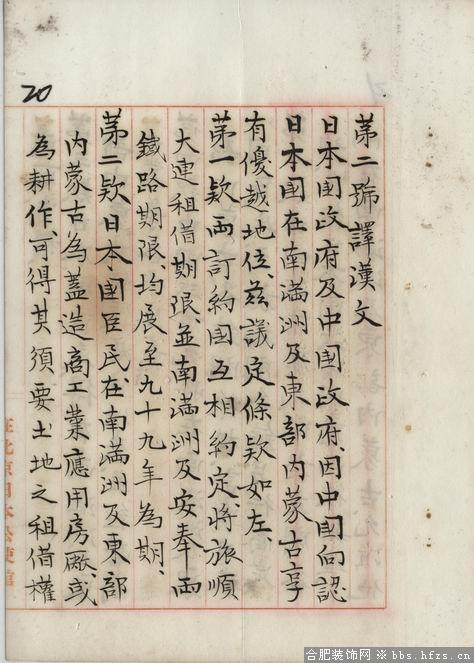 20
第二號譯漢文
日本國政府及中國政府、因中國向認
日本國在南滿洲及東部內蒙古享
有優越地位、茲議定條款如左、
第一款、兩訂約國互相約定、將旅順
大連租借期限、並南滿洲及安奉兩
鐵路期限、均展至九十九年為期、
第二款、日本國臣民、在南滿洲及東部
內蒙古為蓋造商工業應用房廠、或
為耕作、可得其須要土地之租借權
在北京日本公使館
合肥装饰网※bbs.hfzs.cn